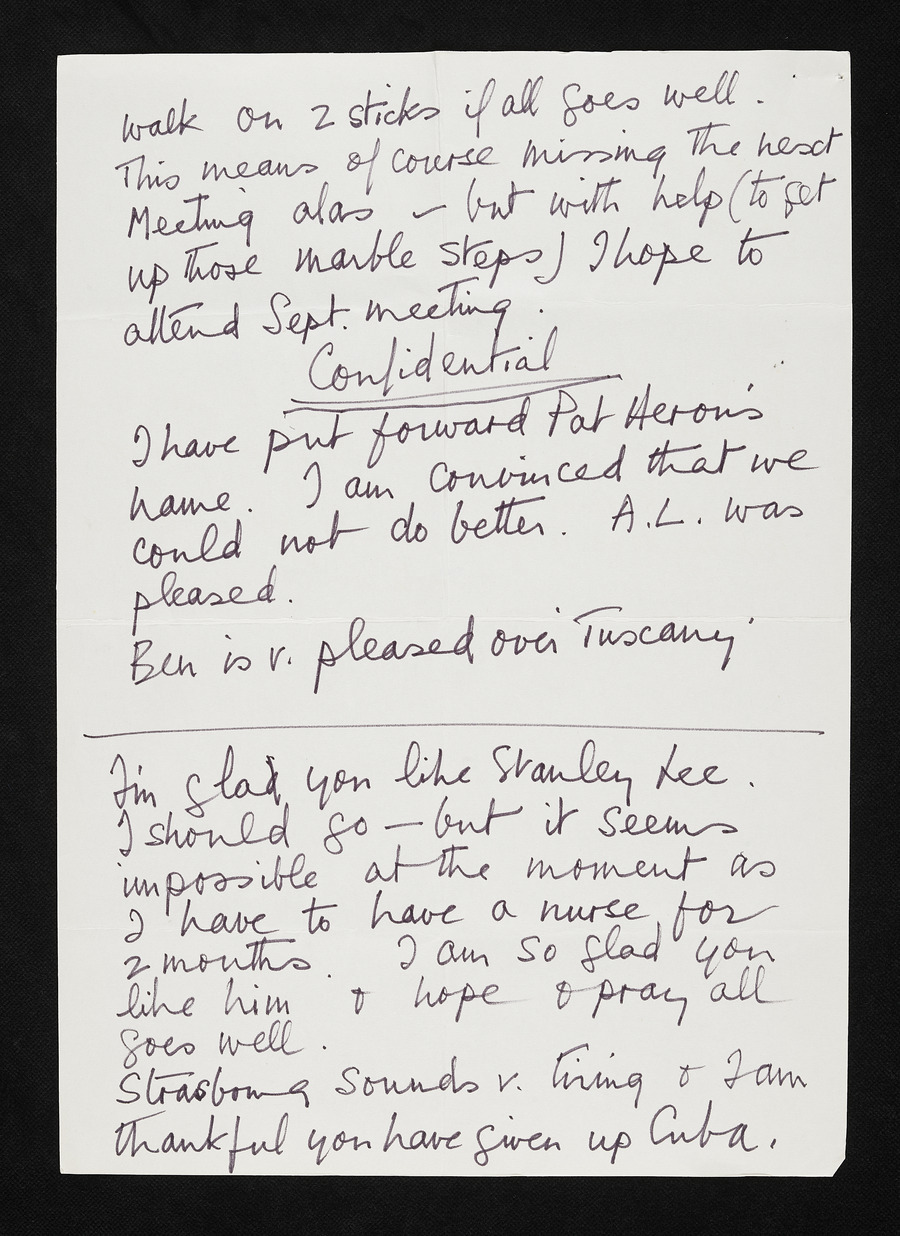 walk on 2 sticks if all goes well.
This means of course missing the next
Meeting alas – but with help (to get
up those marble steps) I hope to
attend Sept. meeting.
Confidential
I have put forward Pat Heron's
name. I am convinced that we
could not do better. A.L. was
pleased.
Ben is v. pleased over Tuscany
I'm glad you like Stanley Lee.
I should go – but it seems
impossible at the moment as
I have to have a nurse for
2 months. I am so glad you
like him & hope & pray all
goes well.
Strasbourg sounds v. tiring & I am
thankful you have given up Cuba.